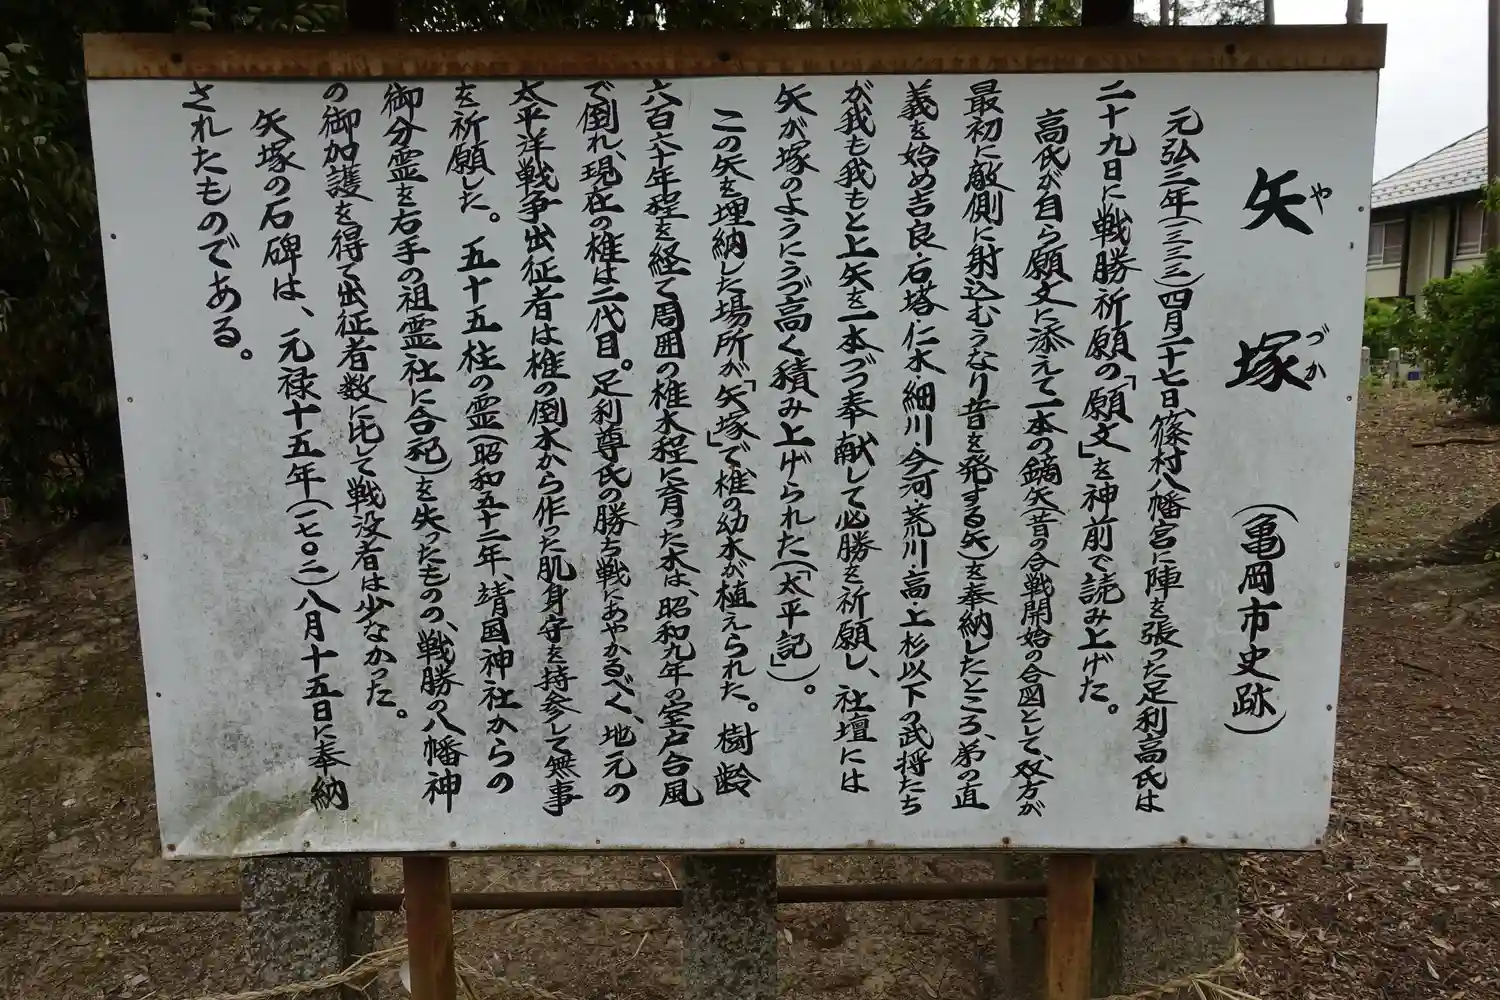 矢塚 (亀岡市史跡)
や づか
元弘三年(一三三三)四月二十七日、篠村八幡宮に陣を張った足利高氏は
二十九日に戦勝祈願の「願文」を神前で読み上げた。
高氏が自ら願文に添えて一本の鏑矢(昔の合戦開始の合図として、双方が
最初に敵側に射込むうなり音を発する矢)を奉納したところ、弟の直
義を始め吉良・石塔・仁木・細川・今河・荒川・高・上杉以下の武将たち
が我も我もと上矢を一本づつ奉献して必勝を祈願し、社壇には
矢が塚のようにうづ高く積み上げられた(「太平記」)。
この矢を埋納した場所が「矢塚」で椎の幼木が植えられた。樹齢
六百六十年程を経て周囲の椎木程に育った木は、昭和九年の室戸台風
で倒れ、現在の椎は二代目。足利尊氏の勝ち戦にあやかるべく、地元の
太平洋戦争出征者は椎の倒木から作った肌身守を持参して無事
を祈願した。五十五柱の霊(昭和五十二年、靖国神社からの
御分霊を右手の祖霊社に合祀)を失ったものの、戦勝の八幡神
の御加護を得て出征者数に比して戦没者は少なかった。
矢塚の石碑は、元禄十五年(一七〇二)八月十五日に奉納
されたものである。